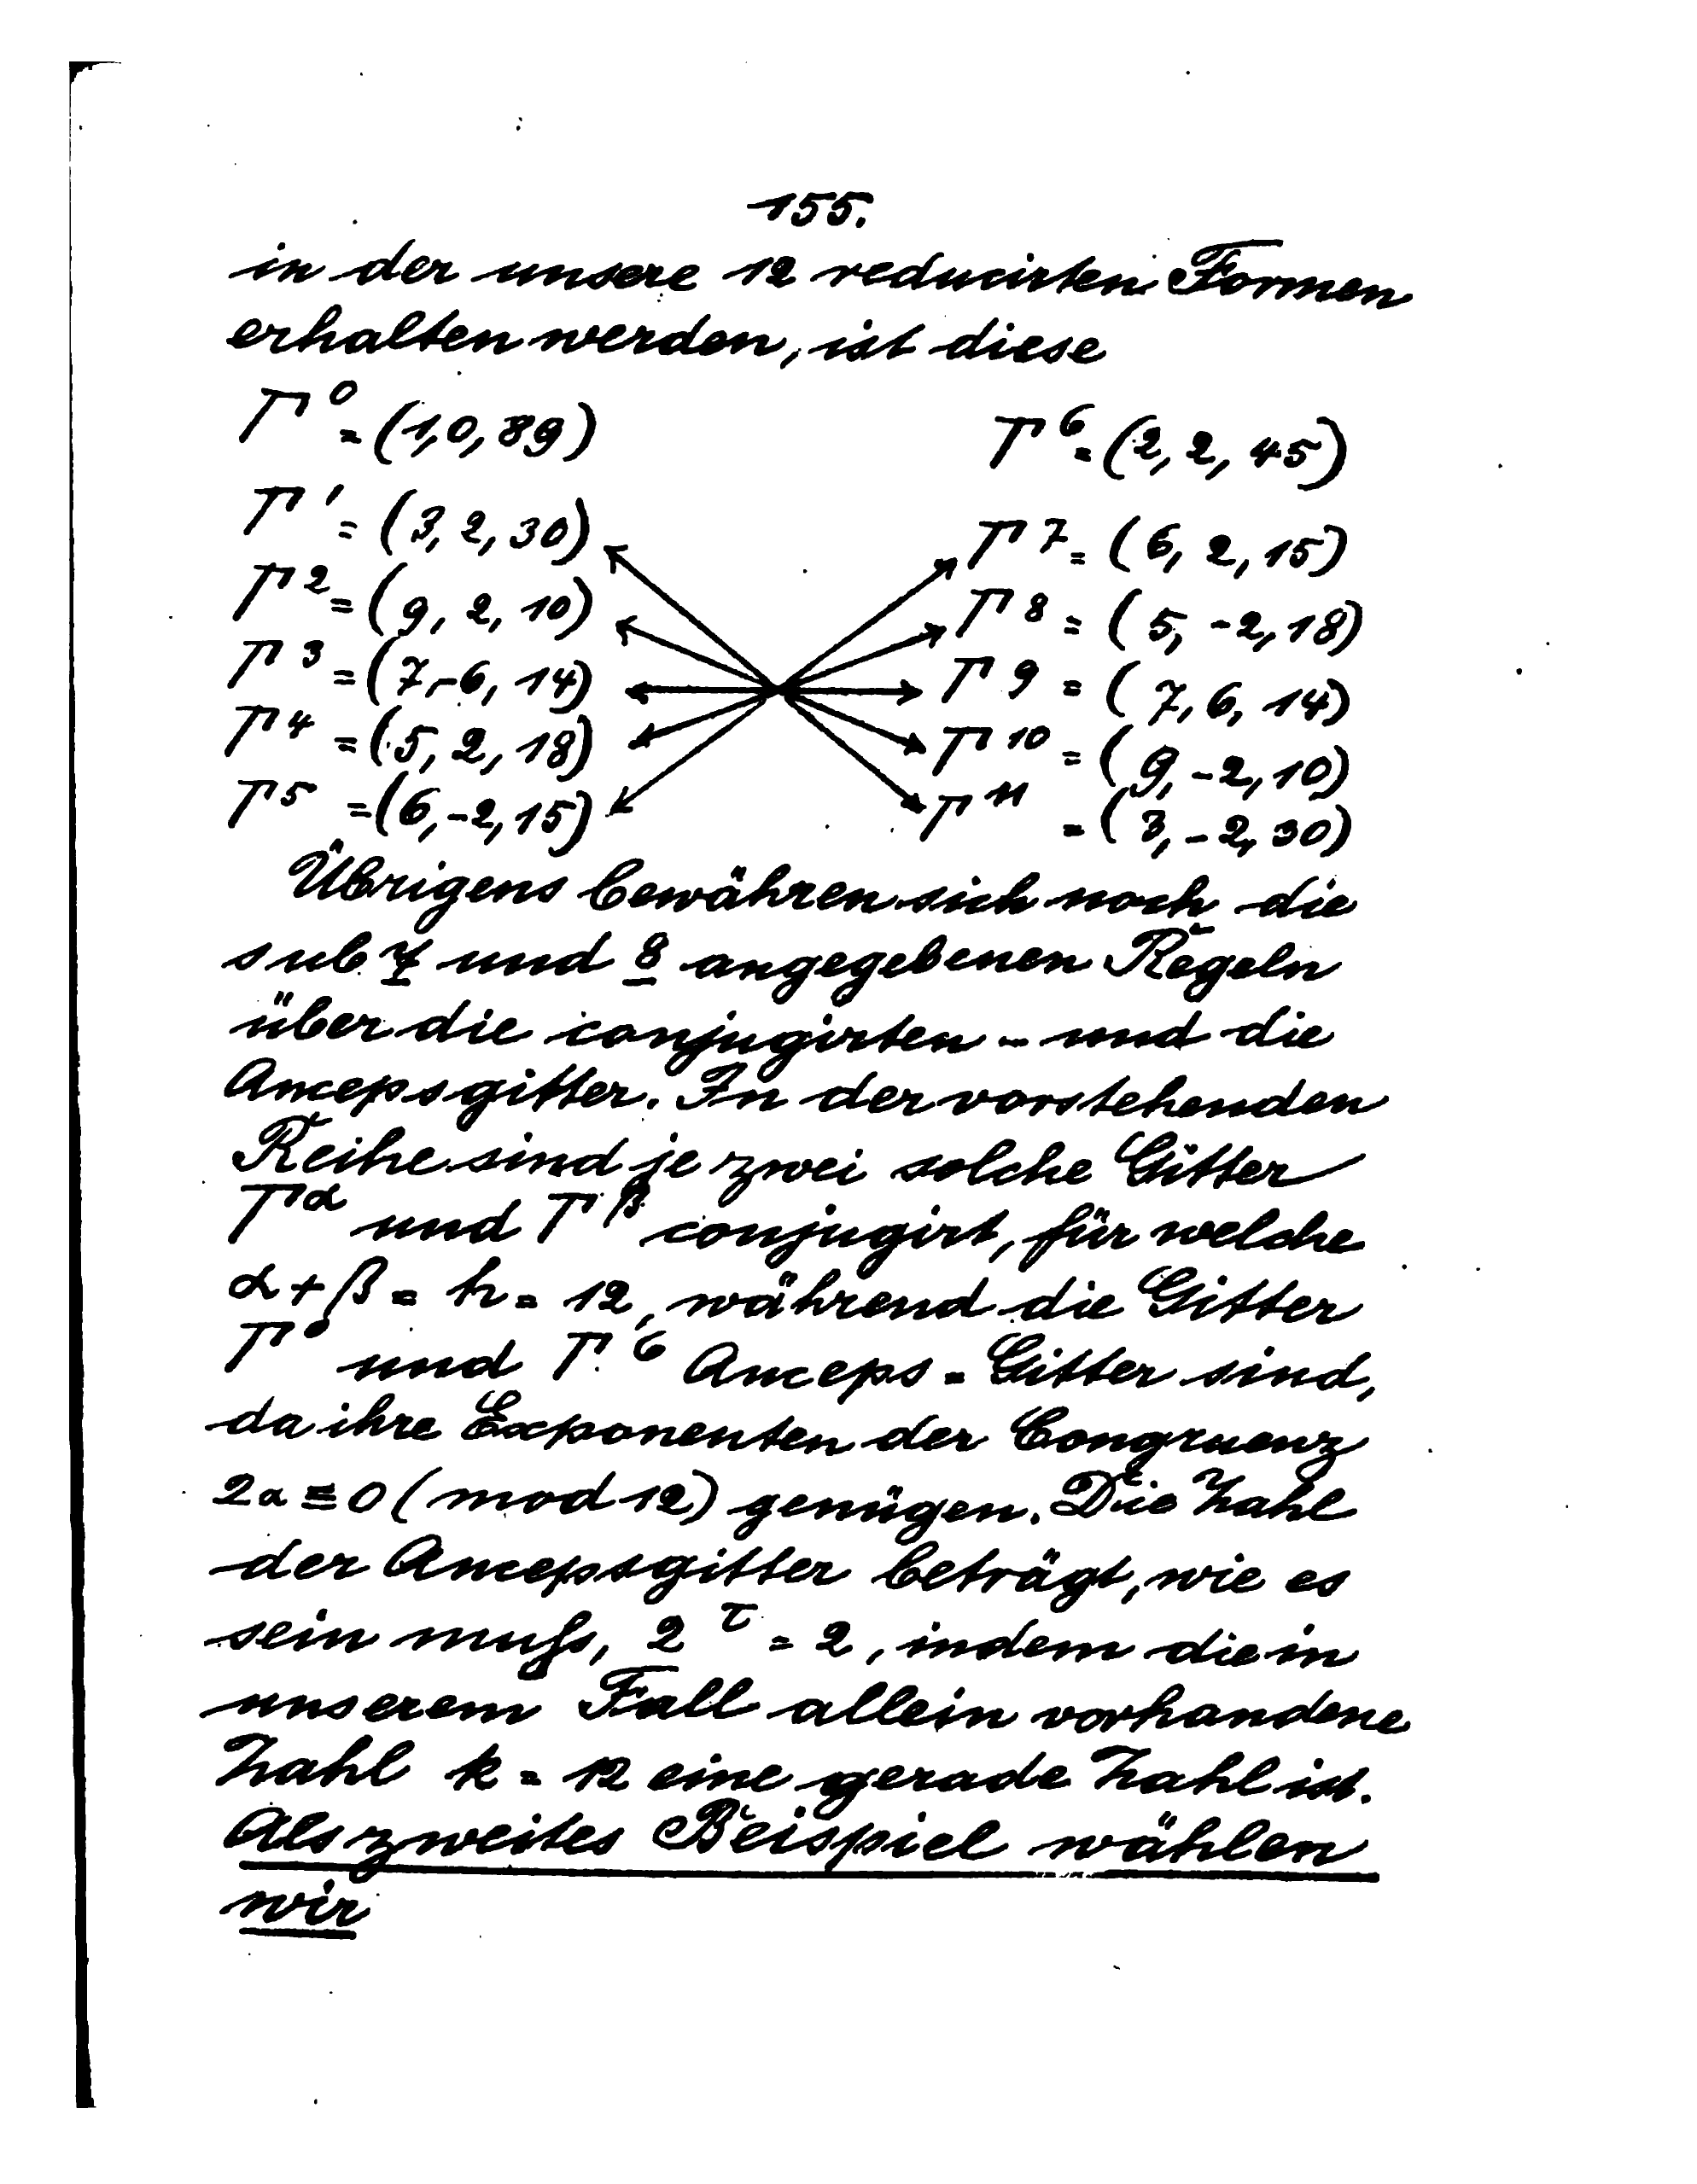 155.
in der unsere 12 reducirten Formen
erhalten werden, ist diese
Γ⁰ = (1,0,89) Γ⁶ = (2, 2, 45)
Γ¹ = (3, 2, 30) Γ⁷ = (6, 2, 15)
Γ² = (9, 2, 10) Γ⁸ = (5, -2, 18)
Γ³ = (7, -6, 14) Γ⁹ = (7, 6, 14)
Γ⁴ = (5, 2, 18) Γ¹⁰ = (9, -2, 10)
Γ⁵ = (6, -2, 15) Γ¹¹ = (3, -2, 30)
Übrigens bewähren sich noch die
sub 7 und 8 angegebenen Regeln
über die conjugirten - und die
Ancepsgitter. In der vorstehenden
Reihe sind je zwei solche Gitter
Γ^α und Γ^β conjugirt, für welche
α + β = h = 12, während die Gitter
Γ⁰ und Γ⁶ Anceps = Gitter sind,
da ihre Exponenten der Congruenz
2α ≡ 0 (mod 12) genügen. Die Zahl
der Ancepsgitter beträgt, wie es
sein muß, 2^τ = 2, indem die in
unserem Fall allein vorhandene
Zahl k = 12 eine gerade Zahl ist.
Als zweites Beispiel wählen
wir